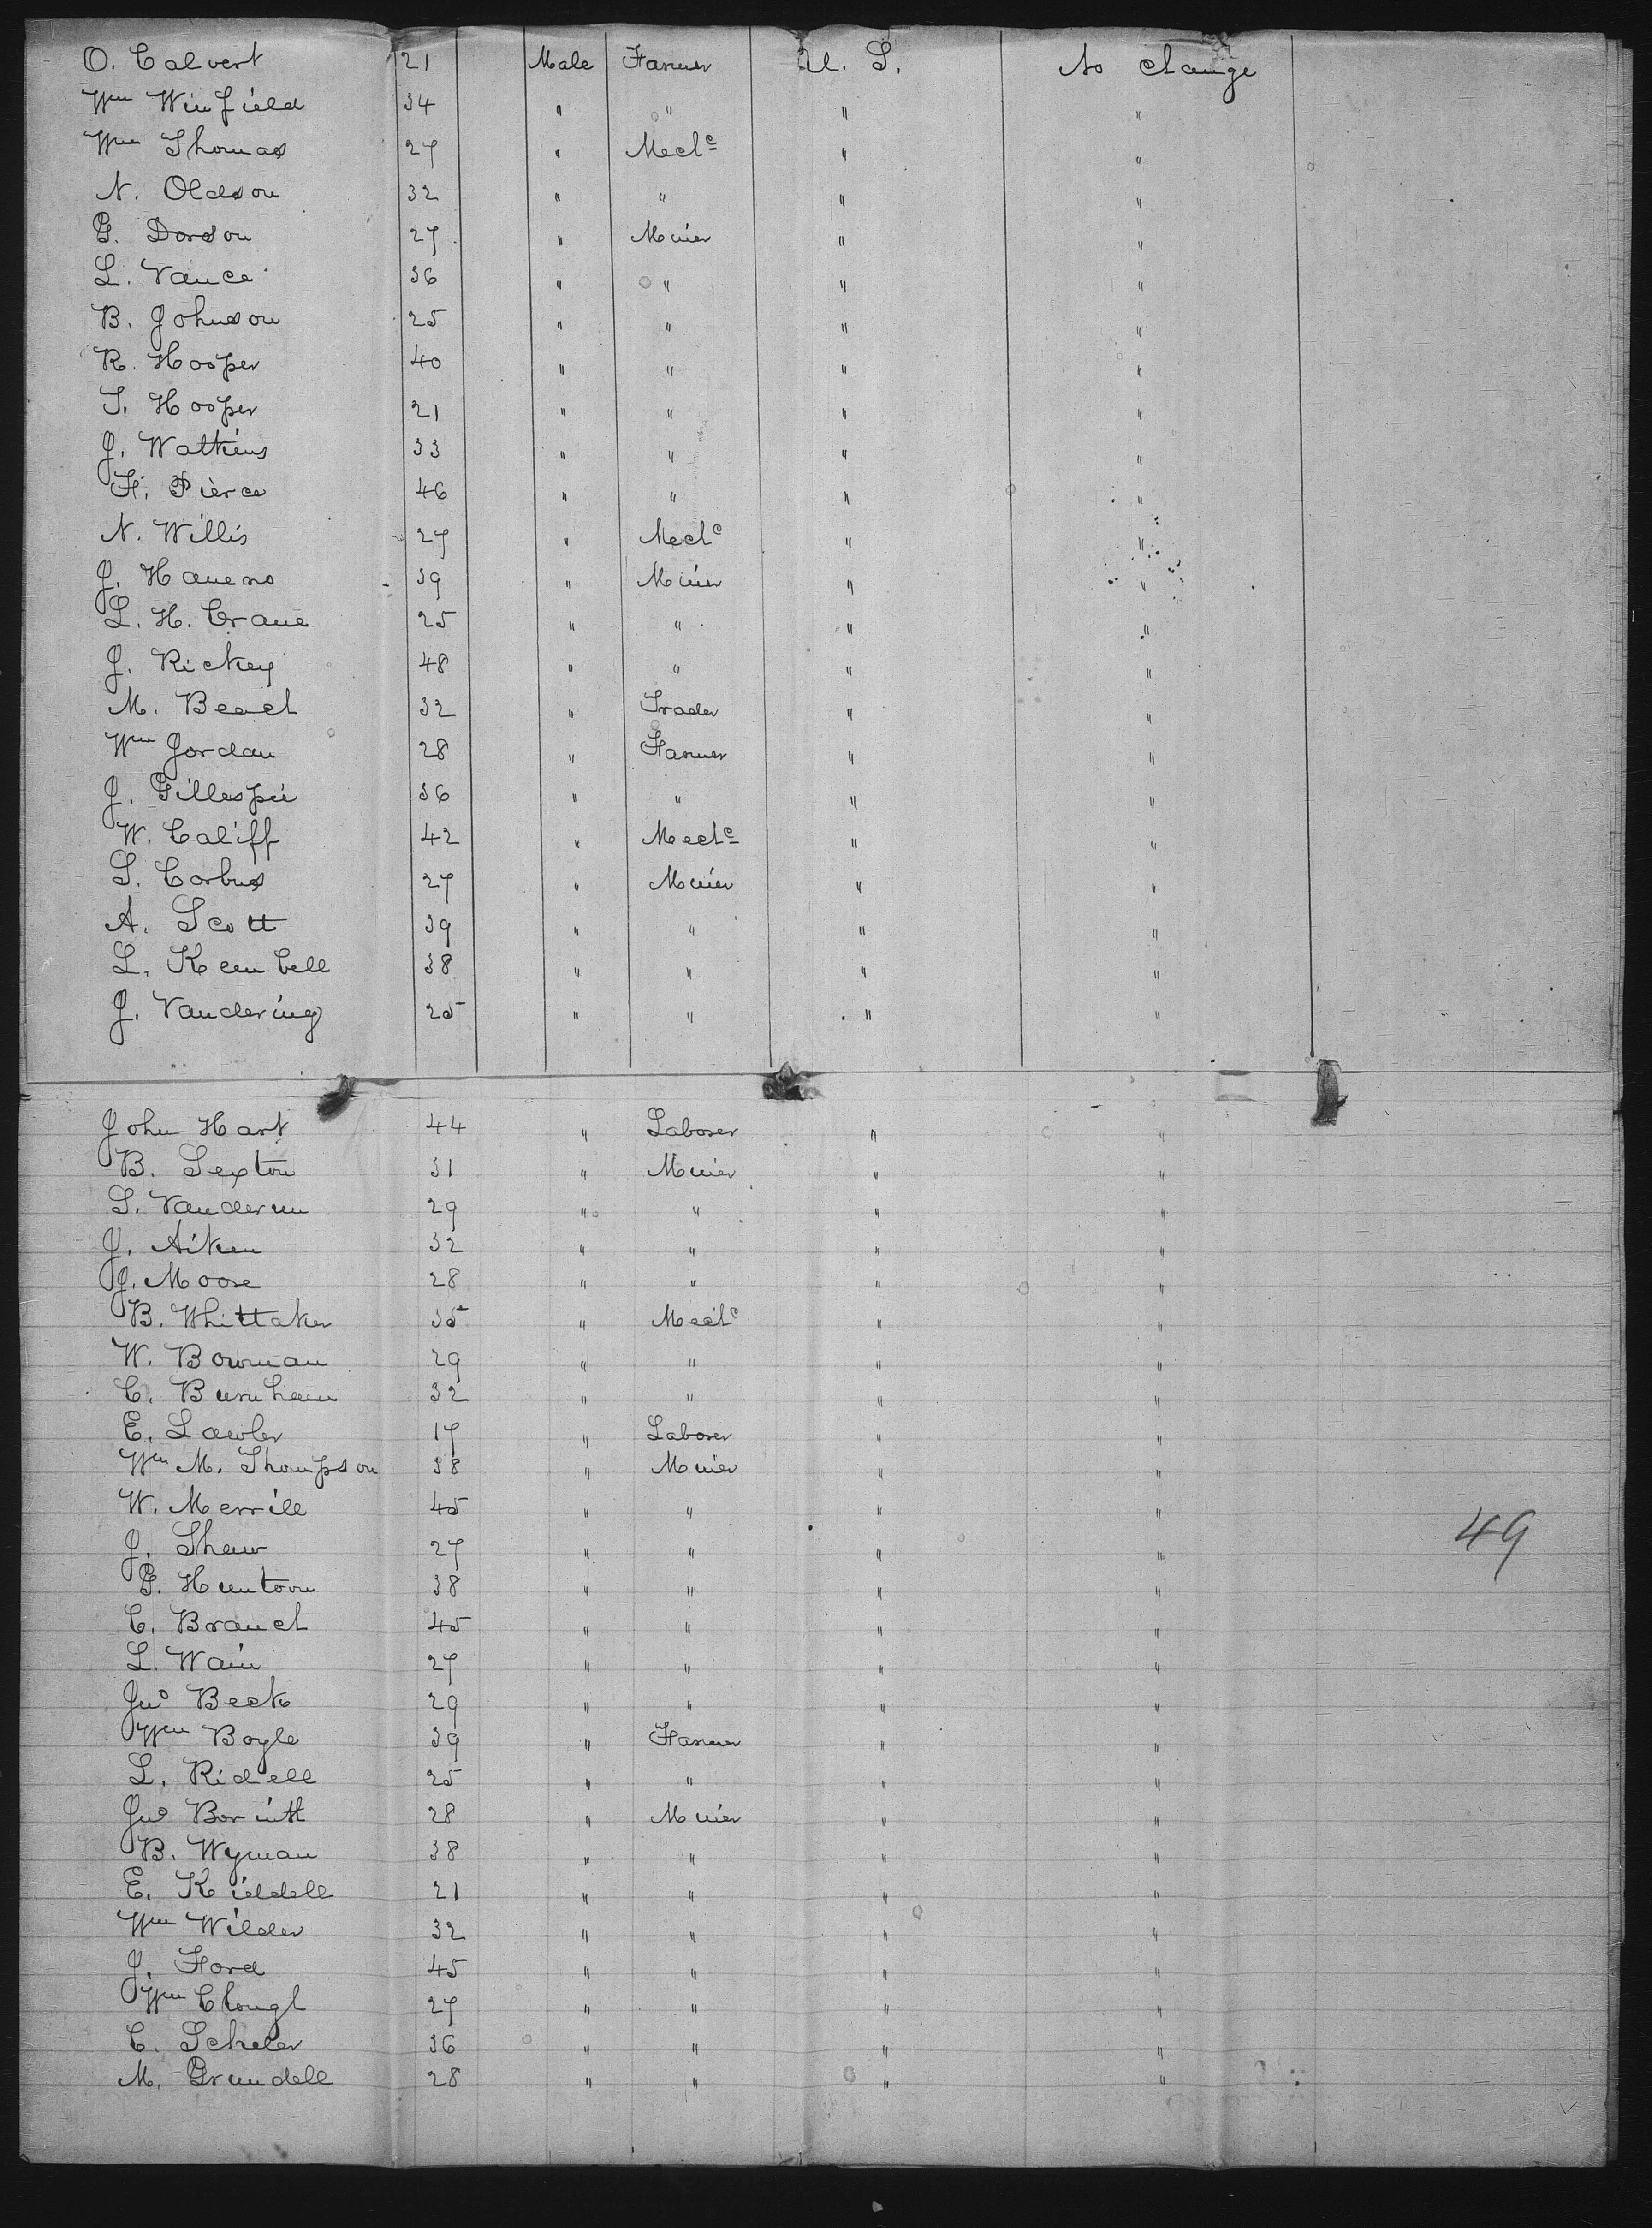 O. Calvert 21 Male Farmer U. S. No change
Wm Winfield 34 " " " "
Wm Thomas 27 " Mechc " "
N. Oldson 32 " " " "
G. Dordon 27 " Miner " "
L. Vance 36 " " " "
B. Johnson 25 " " " "
R. Hooper 40 " " " "
T. Hooper 21 " " " "
J. Watkins 33 " " " "
F. Pierce 46 " " " "
N. Willis 27 " Mechc " "
J. 39 " Miner " "
L. H. Crane 25 " " " "
J. Rickey 48 " " " "
M. Beach 32 " Trader " "
Wm Jordan 28 " Farmer " "
J. Gillespie 36 " " " "
W. Califf 42 " Mechc " "
S. Corbus 27 " Miner " "
A. Scott 39 " " " "
L. Kembell 38 " " " "
J. Vandering 25 " " " "
John Hart 44 " Laborer " "
B. Sexton 31 " Miner " "
S. 29 " " " "
J. Aiken 32 " " " "
J. Moore 28 " " " "
B. Whittaker 35 " Mechc " "
W. Bowman 29 " " " "
C. Burnham 32 " " " "
E. Lawler 17 " Laborer " "
Wm M. Thompson 38 " Miner " "
W. Merrill 45 " " " "
J. Shaw 27 " " " " 49
G. Huntoon 38 " " " "
C. Branch 45 " " " "
L. Wain 27 " " " "
Jno Beck 29 " " " "
Wm Boyle 39 " Farmer " "
L. Ridell 25 " " " "
Jno 28 " Miner " "
B. Wyman 38 " " " "
E. Kiddell 21 " " " "
Wm Wilder 32 " " " "
J. Ford 45 " " " "
Wm Clough 27 " " " "
C. Scheler 36 " " " "
M. Grundell 28 " " " "